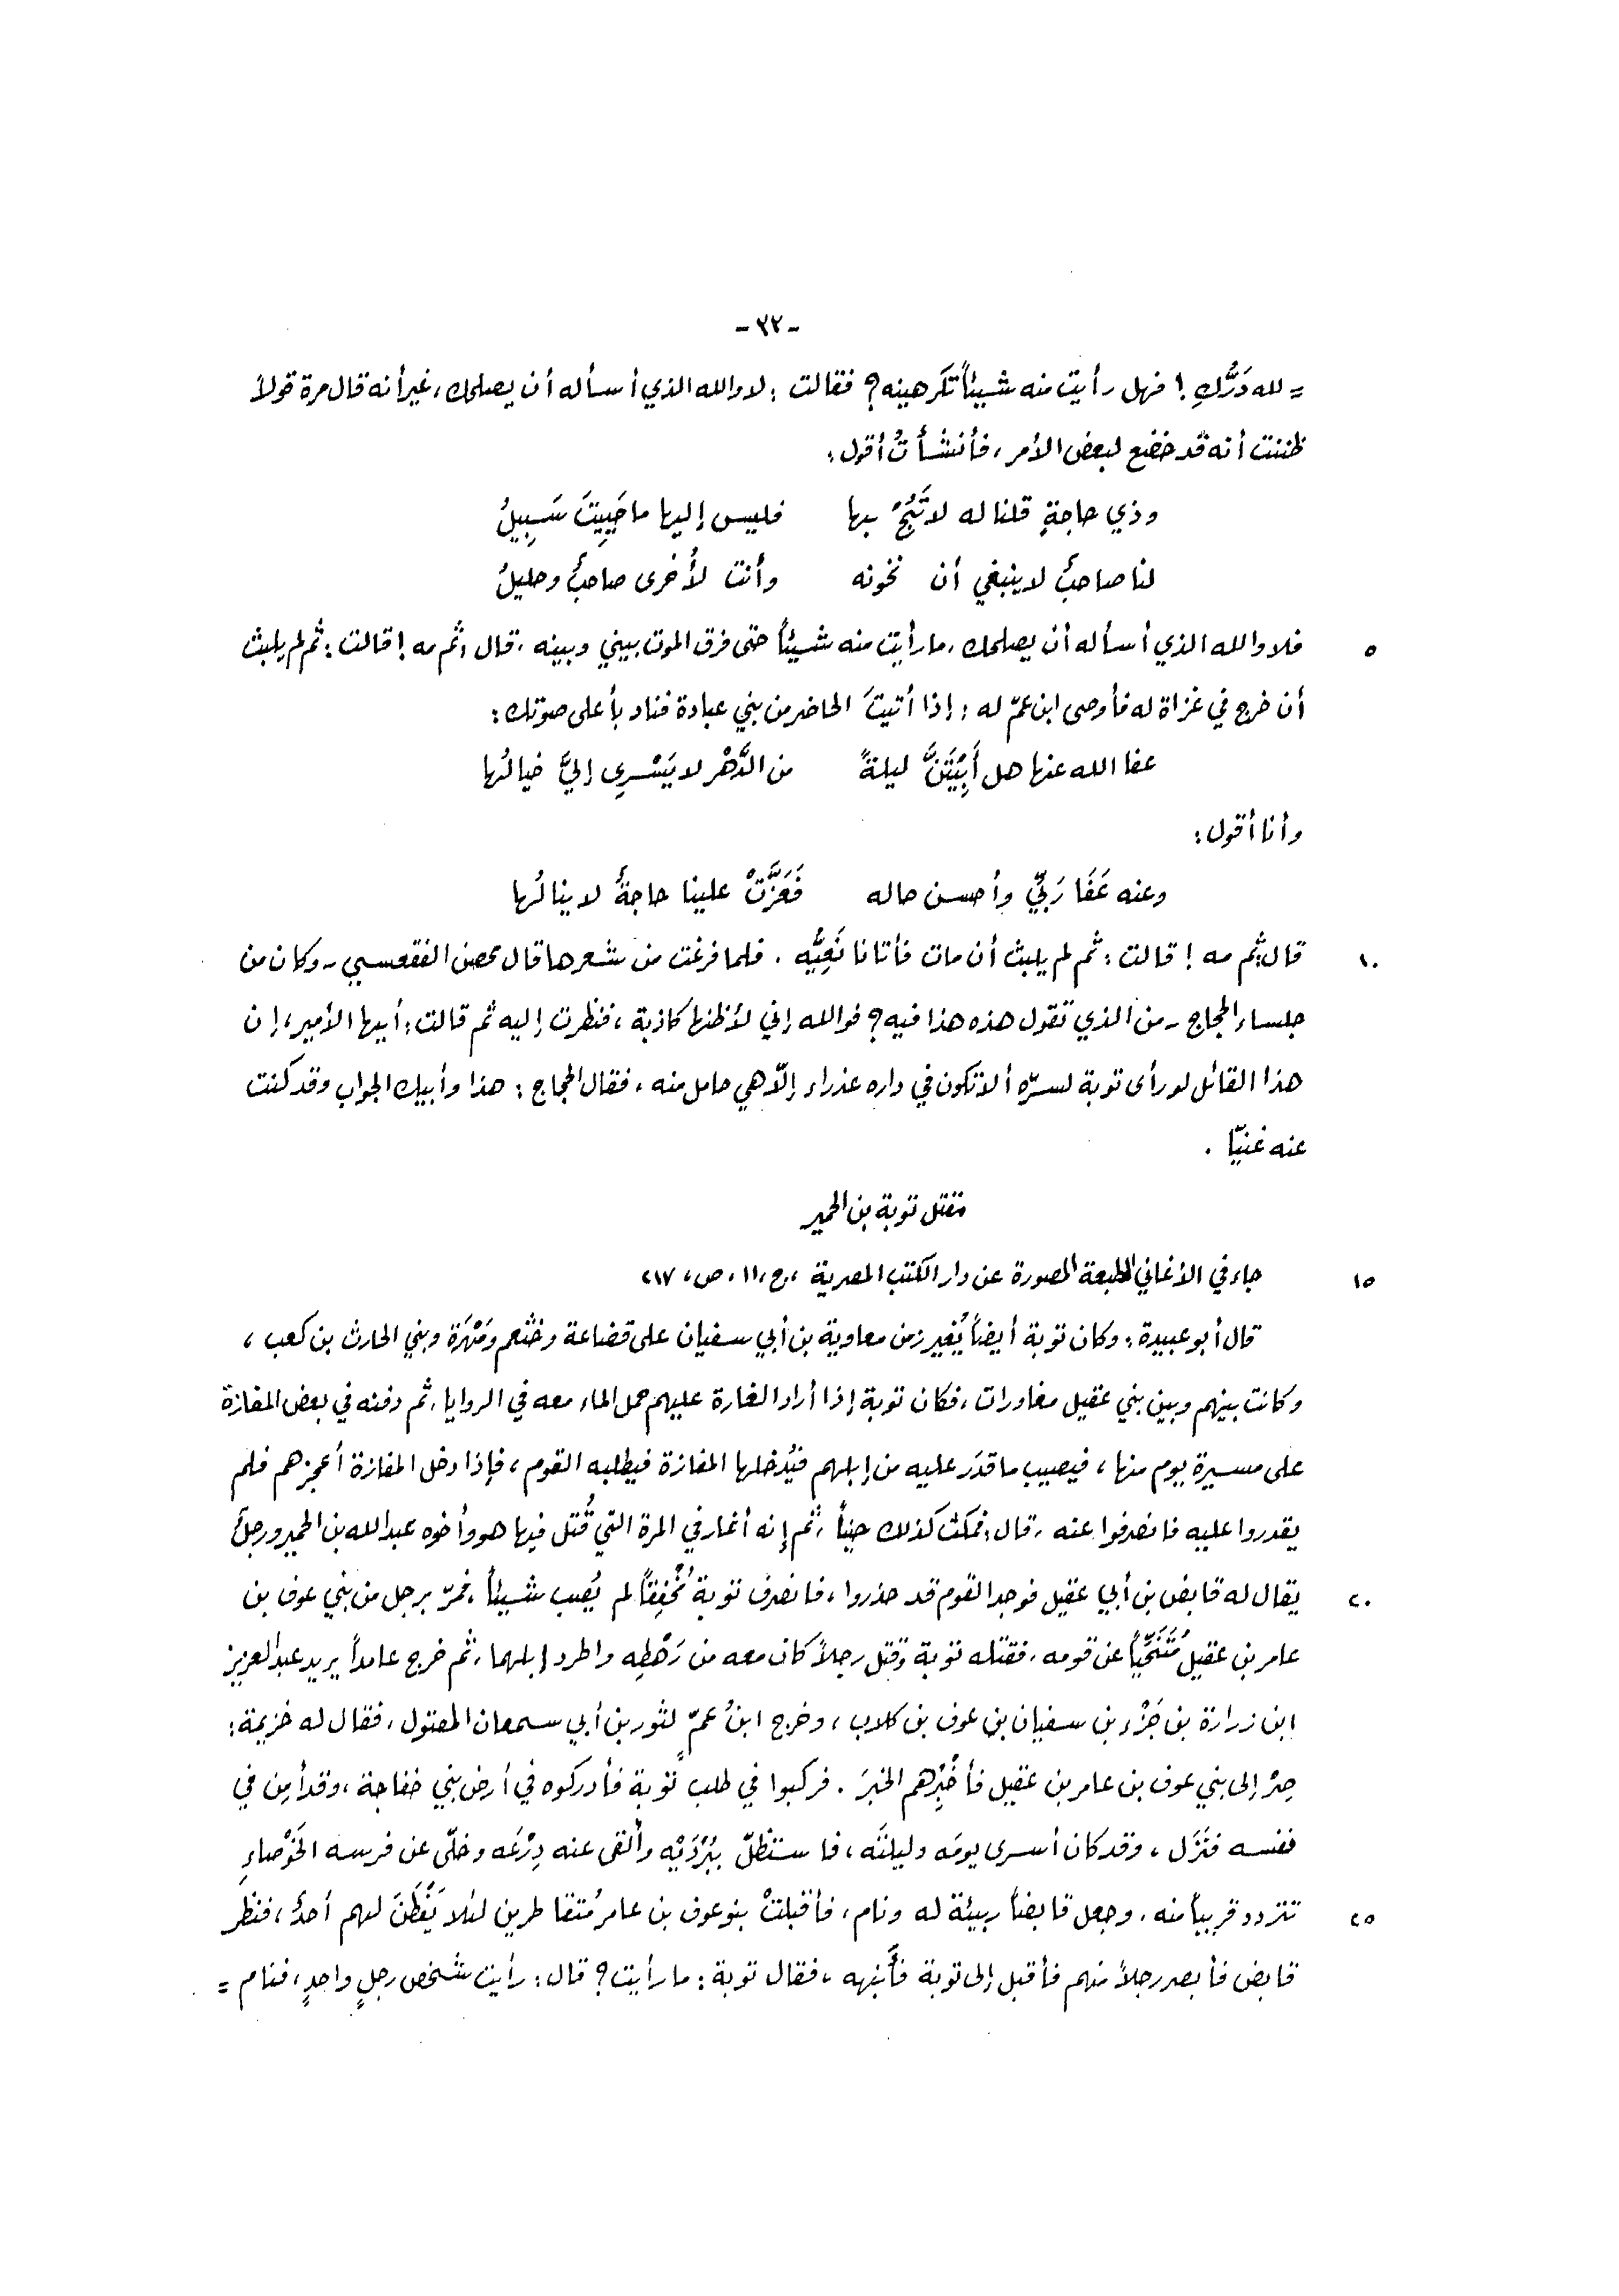 - ٣٢ -
= لله دَرُّكِ ! فهل رأيت منه شيئاً تكرهينه؟ فقالت : لا والله الذي أسأله أن يصلحك، غير أنه قال مرة قولاً
ظننت أنه قد خضع لبعض الأمر ، فأنشأتُ أقول :
وذي حاجةٍ قلنا له لا تَبُحْ بها    فليس إليها ما حَيِيتَ سَبِيلُ
لنا صاحبٌ لا ينبغي أن نخونه    وأنت لأُخرى صاحبٌ وحليلُ
٥ فلا والله الذي أسأله أن يصلحك ، ما رأيت منه شيئاً حتى فرق الموت بيني وبينه . قال : ثم مه ! قالت : ثم لم يلبث
أن خرج في غزاة له فأوصى ابن عمّ له : إذا أتيتَ الحاضر من بني عبادة فناد بأعلى صوتك :
عفا الله عنها هل أَبِيْتَنَّ ليلةً    من الدَّهْر لا يَسْرِي إليَّ خيالُها
وأنا أقول :
وعنه عَفَا رَبِّي وأحسن حاله    فَعَزَّتْ علينا حاجةٌ لا ينالُها
١٠ قال : ثم مه ! قالت : ثم لم يلبث أن مات فأتانا نَعِيُّه . فلما فرغت من شعرها قال محصن الفقعسي - وكان من
جلساء الحجاج - من الذي تقول هذه هذا فيه ؟ فوالله إني لأظنها كاذبة ، فنظرت إليه ثم قالت : أيها الأمير ، إن
هذا القائل لو رأى توبة لسرّه ألا تكون في داره عذراء إلاّ هي حامل منه ، فقال الحجاج : هذا وأبيك الجواب وقد كنت
عنه غنيّا .
مقتل توبة بن الحمير
١٥ جاء في الأغاني الطبعة المصورة عن دار الكتب المصرية ، ج ، ١١ ، ص ، ٢١٧
قال أبو عبيدة : وكان توبة أيضاً يُغير زمن معاوية بن أبي سفيان على قضاعة وخثعم ومَهْرَة وبني الحارث بن كعب ،
وكانت بينهم وبين بني عقيل مغاورات ، فكان توبة إذا أراد الغارة عليهم حمل الماء معه في الروايا ، ثم دفنه في بعض المفازة
على مسيرة يوم منها ، فيصيب ما قدَر عليه من إبلهم فيُدخلها المفازة فيطلبه القوم ، فإذا دخل المفازة أعجزهم فلم
يقدروا عليه فانصرفوا عنه . قال : فمكث كذلك حيناً ، ثم إنه أغار في المرة التي قُتل فيها هو وأخوه عبد الله بن الحمير ورجلٌ
٢٠ يقال له قابض بن أبي عقيل فوجد القوم قد حذروا ، فانصرف توبة مُخْفِقاً لم يُصِب شيئاً ، فمرّ برجل من بني عوف بن
عامر بن عقيل مُتَنَحِّياً عن قومه ، فقتله توبة وقتل رجلاً كان معه من رَهْطِه واطرد إبلهما ، ثم خرج عامداً يريد عبد العزيز
ابن زرارة بن جَزْء بن سفيان بن عوف بن كلاب ، وخرج ابنُ عمٍّ لثور بن أبي سمعان المقتول ، فقال له خزيمة :
صِرْ إلى بني عوف بن عامر بن عقيل فأخْبِرْهم الخبرَ . فركبوا في طلب توبة فأدركوه في أرض بني خفاجة ، وقد أَمِن في
نفسه فنَزَل ، وقد كان أسرى يومَه وليلتَه ، فاستظلّ ببُرْدَيْه وألقى عنه دِرْعَه وخلّى عن فرسه الخَوْصاءِ
٢٥ تتردد قريباً منه . وجعل قابضاً ربيئة له ونام ، فأقبلتْ بنو عوف بن عامر مُتقاطرين لئلا يَفْطَنَ لهم أحدٌ ، فنظر
قابض فأبصر رجلاً منهم فأقبل إلى توبة فأنبهه ، فقال توبة : ما رأيت ؟ قال : رأيت شخص رجلٍ واحدٍ ، فنام =